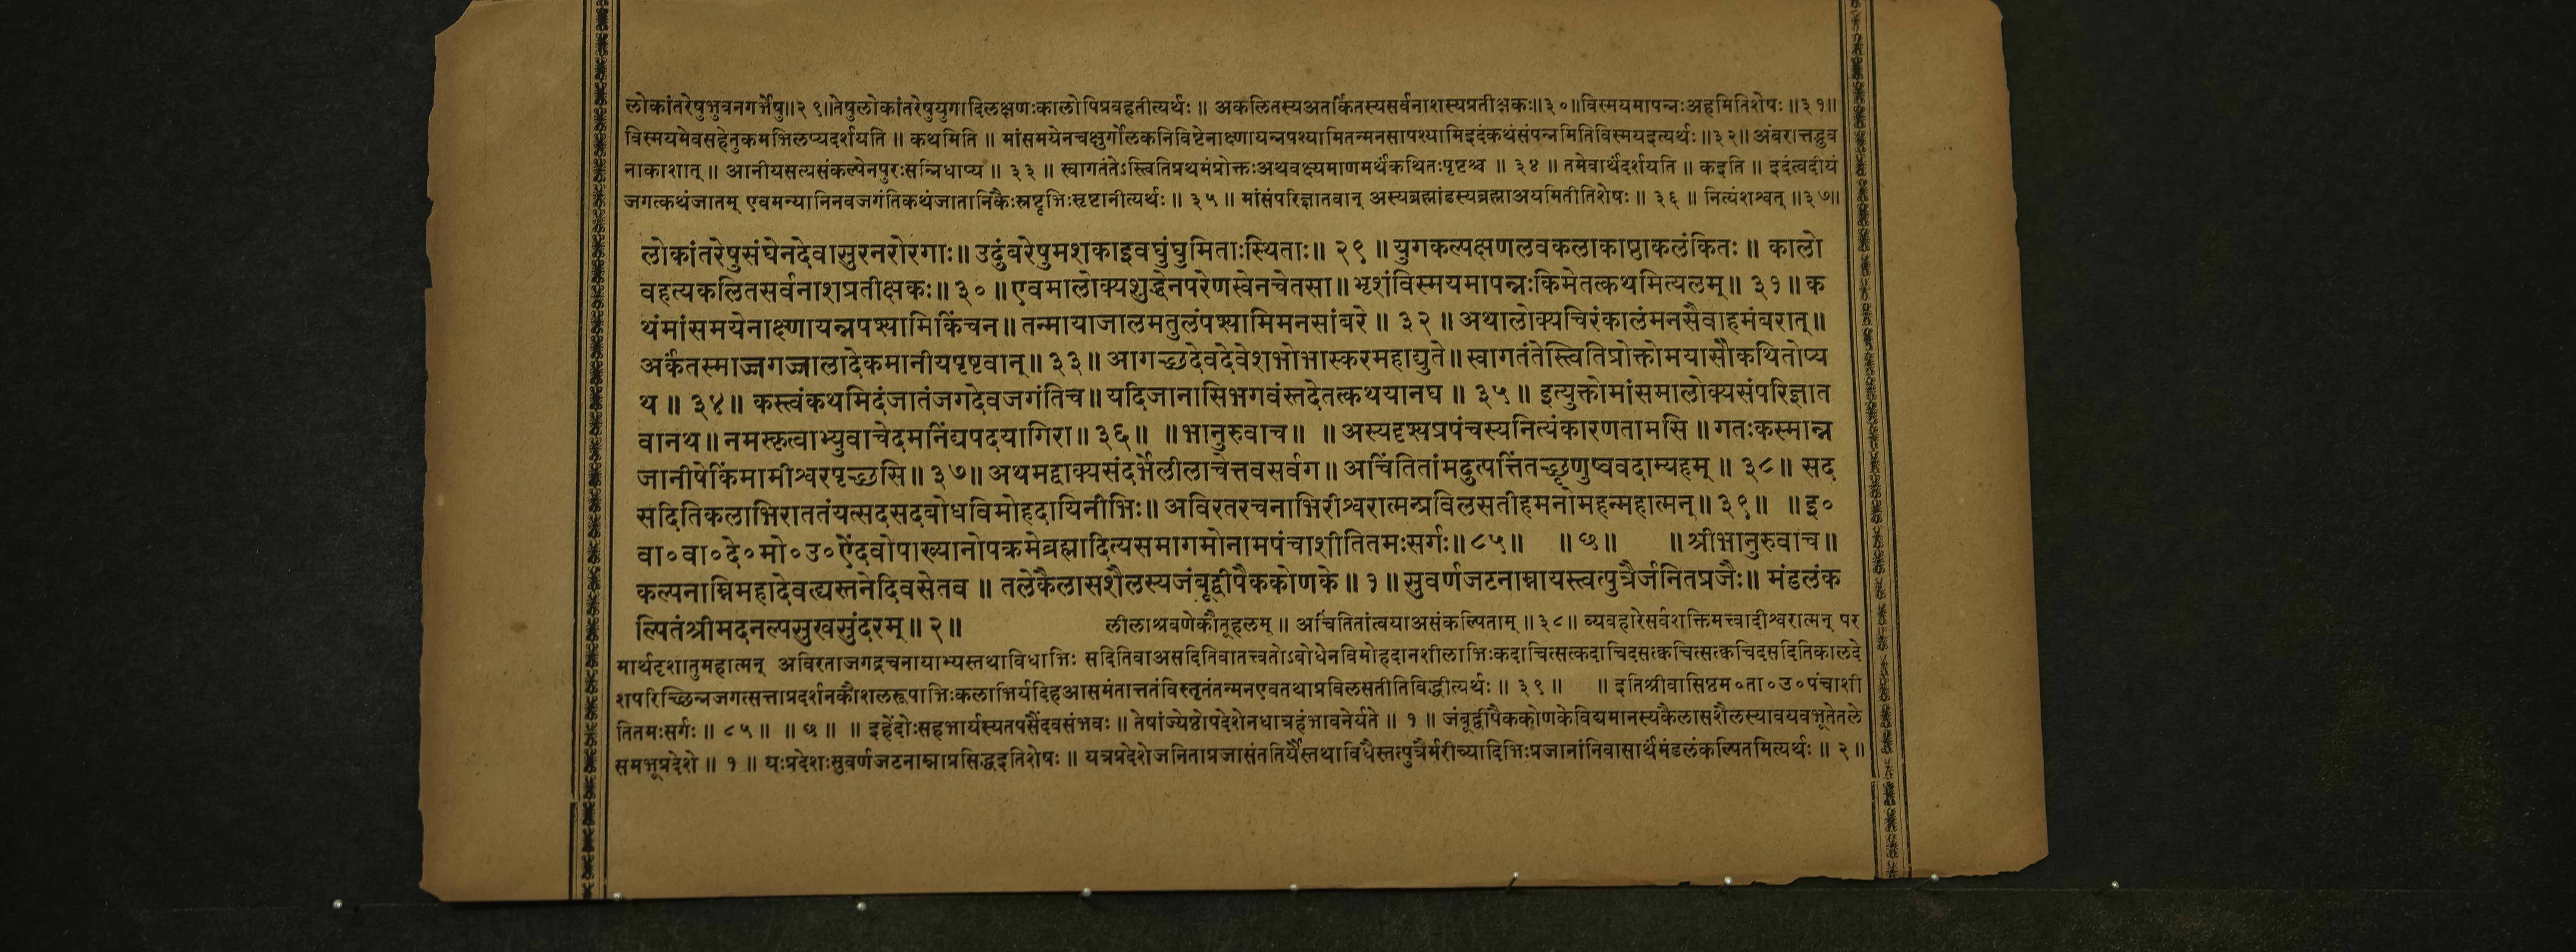 लोकांतरेषुभुवनगर्भेषु॥२९॥तेषुलोकांतरेषुयुगादिलक्षणःकालोपिप्रवहतीत्यर्थः ॥ अकलितस्यअतर्कितस्यसर्वनाशस्यप्रतीक्षकः॥३०॥विस्मयमापन्नःअहमितिशेषः ॥३१॥
विस्मयमेवसहेतुकमभिलप्यदर्शयति ॥ कथमिति ॥ मांसमयेनचक्षुर्गोलकनिविष्टेनाक्ष्णायन्नपश्यामितन्मनसापश्यामिइदंकथंसंपन्नमितिविस्मयइत्यर्थः॥३२॥ अंबरात्तद्भुव
नाकाशात् ॥ आनीयसत्यसंकल्पेनपुरःसन्निधाप्य ॥ ३३ ॥ स्वागतंतेऽस्त्वितिप्रथमंप्रोक्तःअथवक्ष्यमाणमर्थंकथितःपृष्टश्च ॥ ३४ ॥ तमेवार्थंदर्शयति ॥ कइति ॥ इदंत्वदीयं
जगत्कथंजातम् एवमन्यानिनवजगंतिकथंजातानिकैःस्रष्टृभिःसृष्टानीत्यर्थः ॥ ३५ ॥ मांसंपरिज्ञातवान् अस्यब्रह्मांडस्यब्रह्माअयमितीतिशेषः ॥ ३६ ॥ नित्यंशश्वत् ॥३७॥
लोकांतरेषुसंघेनदेवासुरनरोरगाः॥ उदुंबरेषुमशकाइवघुंघुमिताःस्थिताः॥ २९ ॥ युगकल्पक्षणलवकलाकाष्ठाकलंकितः ॥ कालो
वहत्यकलितसर्वनाशप्रतीक्षकः॥ ३० ॥ एवमालोक्यशुद्धेनपरेणस्वेनचेतसा॥ भृशंविस्मयमापन्नःकिमेतत्कथमित्यलम्॥ ३१ ॥ क
थंमांसमयेनाक्ष्णायन्नपश्यामिकिंचन॥ तन्मायाजालमतुलंपश्यामिमनसांबरे ॥ ३२ ॥ अथालोक्यचिरंकालंमनसैवाहमंबरात्॥
अर्कंतस्माज्जगज्जालादेकमानीयपृष्टवान्॥ ३३॥ आगच्छदेवदेवेशभोभास्करमहाद्युते॥ स्वागतंतेस्त्वितिप्रोक्तोमयासौकथितोप्य
थ ॥ ३४॥ कस्त्वंकथमिदंजातंजगदेवजगंतिच॥ यदिजानासिभगवंस्तदेतत्कथयानघ ॥ ३५ ॥ इत्युक्तोमांसमालोक्यसंपरिज्ञात
वानथ॥ नमस्कृत्वाभ्युवाचेदमनिंद्यपदयागिरा॥ ३६॥ ॥ भानुरुवाच॥ ॥ अस्यदृश्यप्रपंचस्यनित्यंकारणतामसि ॥ गतःकस्मान्न
जानीषेकिंमामीश्वरपृच्छसि॥ ३७॥ अथमद्वाक्यसंदर्भेलीलाचेत्तवसर्वग॥ अचिंतितांमदुत्पत्तिंतच्छृणुष्ववदाम्यहम् ॥ ३८॥ सद
सदितिकलाभिराततंयत्सदसदबोधविमोहदायिनीभिः॥ अविरतरचनाभिरीश्वरात्मन्प्रविलसतीहमनोमहन्महात्मन्॥ ३९॥ ॥ इ०
वा०वा०दे०मो०उ०ऐंदवोपाख्यानोपक्रमेब्रह्मादित्यसमागमोनामपंचाशीतितमःसर्गः॥ ८५॥ ॥ छ॥ ॥ श्रीभानुरुवाच॥
कल्पनाम्निमहादेवत्द्यस्तनेदिवसेतव ॥ तलेकैलासशैलस्यजंबूद्वीपैककोणके॥ १॥ सुवर्णजटनाम्नायस्त्वत्पुत्रैर्जनितप्रजैः॥ मंडलंक
ल्पितंश्रीमदनल्पसुखसुंदरम्॥ २॥ लीलाश्रवणेकौतूहलम् ॥ अचिंतितांत्वयाअसंकल्पिताम् ॥३८॥ व्यवहारेसर्वशक्तिमत्त्वादीश्वरात्मन् पर
मार्थदृशातुमहात्मन् अविरताजगद्रचनायाभ्यस्तथाविधाभिः सदितिवाअसदितिवातत्त्वतोऽबोधेनविमोहदानशीलाभिःकदाचित्सत्कदाचिदसत्क्वचित्सत्क्वचिदसदितिकालदे
शपरिच्छिन्नजगत्सत्ताप्रदर्शनकौशलरूपाभिःकलाभिर्यदिहआसमंतात्ततंविस्तृतंतन्मनएवतथाप्रविलसतीतिविद्धीत्यर्थः ॥ ३९ ॥ ॥ इतिश्रीवासिष्ठम०ता०उ०पंचाशी
तितमःसर्गः ॥ ८५ ॥ ॥ छ ॥ ॥ इहेंदोःसहभार्यस्यतपसैंदवसंभवः ॥ तेषांज्येष्ठोपदेशेनधात्रहंभावनेर्यते ॥ १ ॥ जंबूद्वीपैककोणकेविद्यमानस्यकैलासशैलस्यावयवभूतेतले
समभूप्रदेशे ॥ १ ॥ यःप्रदेशःसुवर्णजटनाम्नाप्रसिद्धइतिशेषः ॥ यत्रप्रदेशेजनिताप्रजासंततिर्यैस्तथाविधैस्तत्पुत्रैर्मरीच्यादिभिःप्रजानांनिवासार्थंमंडलंकल्पितमित्यर्थः ॥ २॥